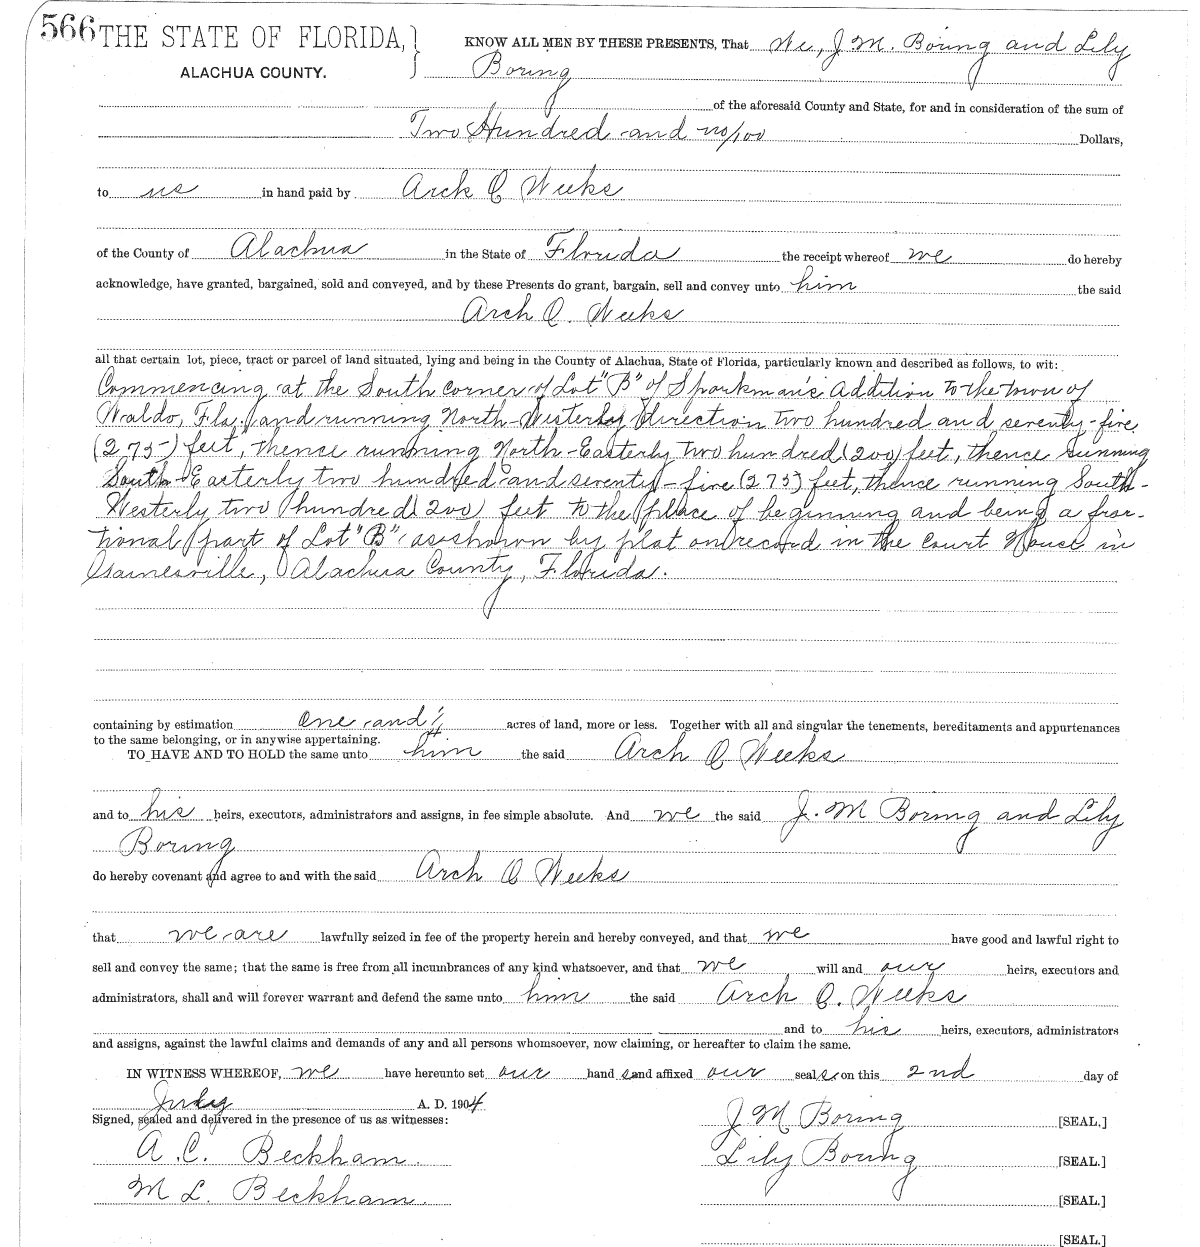 566 THE STATE OF FLORIDA, } KNOW ALL MEN BY THESE PRESENTS, That We, J. M. Boring and Lily
ALACHUA COUNTY. Boring
of the aforesaid County and State, for and in consideration of the sum of
Two Hundred and no/100 Dollars,
to us in hand paid by Arch Q Weeks
of the County of Alachua in the State of Florida the receipt whereof we do hereby
acknowledge, have granted, bargained, sold and conveyed, and by these Presents do grant, bargain, sell and convey unto him the said
Arch Q. Weeks
all that certain lot, piece, tract or parcel of land situated, lying and being in the County of Alachua, State of Florida, particularly known and described as follows, to wit:
Commencing at the South corner of Lot "B" of Sparkman's Addition to the town of
Waldo, Fla., and running North-Westerly direction two hundred and seventy-five
(275) feet, thence running North-Easterly two hundred (200) feet, thence running
South-Easterly two hundred and seventy-five (275) feet, thence running South-
Westerly two hundred (200) feet to the place of beginning and being a frac-
tional part of Lot "B", as shown by plat on record in the Court House in
Gainesville, Alachua County, Florida.
containing by estimation One and 1/4 acres of land, more or less. Together with all and singular the tenements, hereditaments and appurtenances
to the same belonging, or in anywise appertaining.
TO HAVE AND TO HOLD the same unto him the said Arch Q Weeks
and to his heirs, executors, administrators and assigns, in fee simple absolute. And we the said J. M Boring and Lily
Boring
do hereby covenant and agree to and with the said Arch Q Weeks
that we are lawfully seized in fee of the property herein and hereby conveyed, and that we have good and lawful right to
sell and convey the same; that the same is free from all incumbrances of any kind whatsoever, and that we will and our heirs, executors and
administrators, shall and will forever warrant and defend the same unto him the said Arch Q. Weeks
and to his heirs, executors, administrators
and assigns, against the lawful claims and demands of any and all persons whomsoever, now claiming, or hereafter to claim the same.
IN WITNESS WHEREOF, we have hereunto set our hands and affixed our seals on this 2nd day of
July A. D. 1904
Signed, sealed and delivered in the presence of us as witnesses: J M Boring [SEAL.]
A. C. Beckham. Lily Boring [SEAL.]
M L. Beckham. [SEAL.]
[SEAL.]